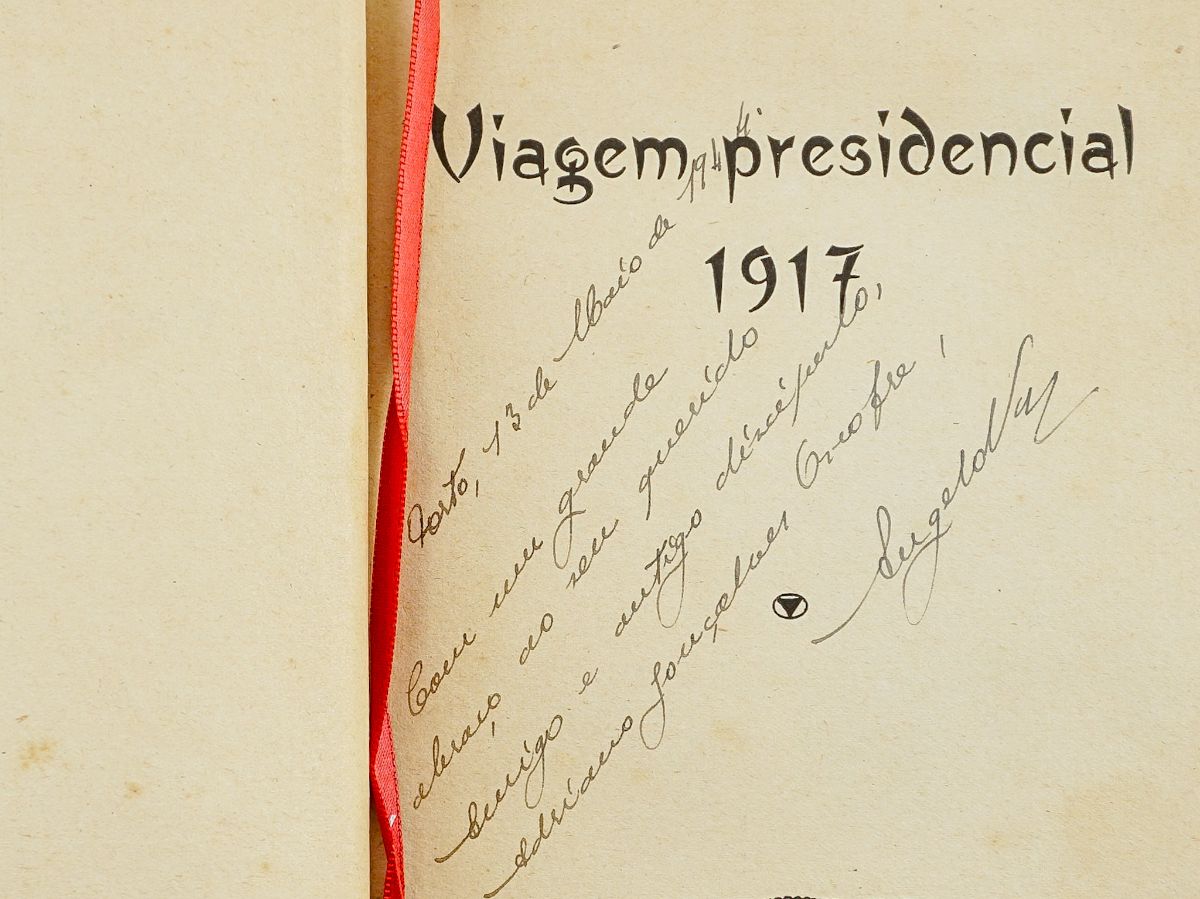 Viagem presidencial
1917
Porto, 13 de Maio de 1944.
Com um grande
abraço, ao seu querido
Amigo e antigo discípulo,
Adriano Gonçalves Onofre,
Angelo Vaz